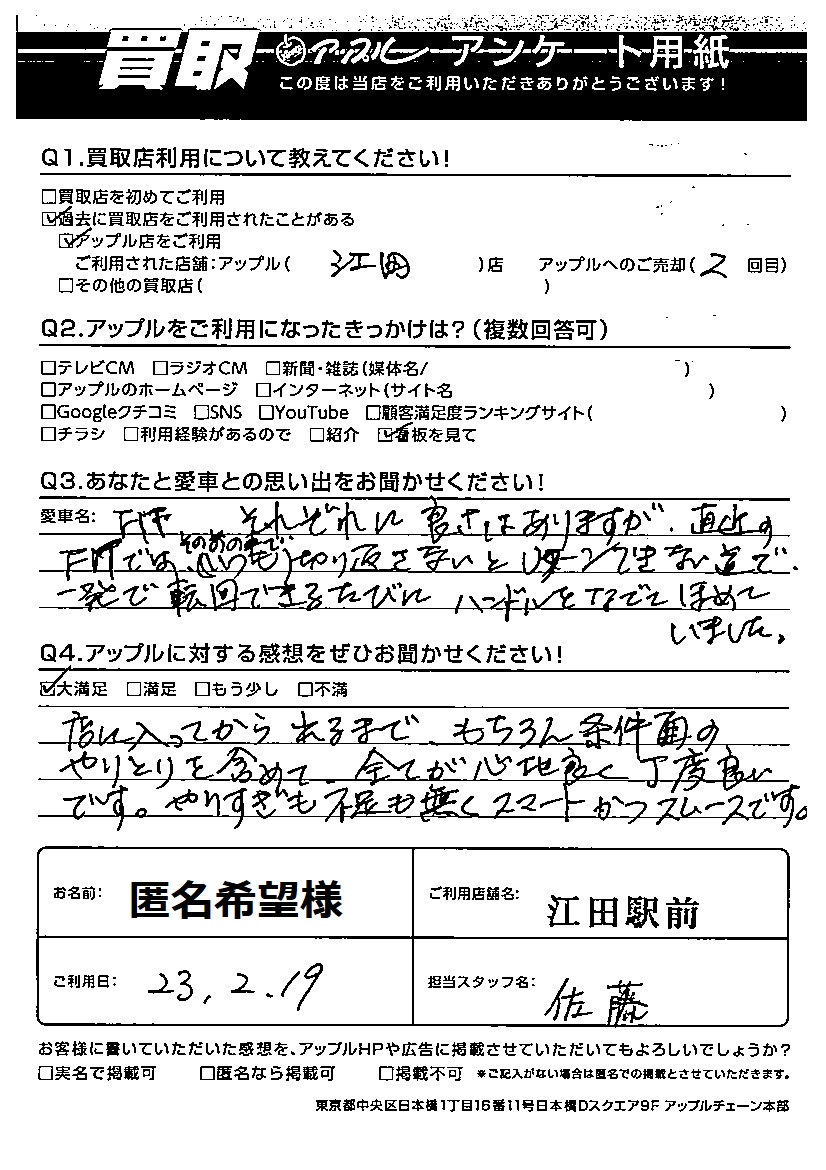 買取 アップル アンケート用紙
この度は当店をご利用いただきありがとうございます!
Q1.買取店利用について教えてください!
□買取店を初めてご利用
☑過去に買取店をご利用されたことがある
☑アップル店をご利用
ご利用された店舗:アップル( 江田 )店 アップルへのご売却( 2 回目)
□その他の買取店( )
Q2.アップルをご利用になったきっかけは?(複数回答可)
□テレビCM □ラジオCM □新聞・雑誌(媒体名/ )
□アップルのホームページ □インターネット(サイト名 )
□Googleクチコミ □SNS □YouTube □顧客満足度ランキングサイト( )
□チラシ □利用経験があるので □紹介 ☑看板を見て
Q3.あなたと愛車との思い出をお聞かせください!
愛車名: FIT それぞれに良さはありますが、直近の
FITでは、その前のまで(いつも)切り返さないとUターンできない道で、
一発で転回できるたびにハンドルをなでてほめて
いました。
Q4.アップルに対する感想をぜひお聞かせください!
☑大満足 □満足 □もう少し □不満
店に入ってから出るまで、もちろん条件面の
やりとりを含めて、全てが心地良く丁度良い
です。やりすぎも不足も無くスマートかつスムースです。
お名前: 匿名希望様 ご利用店舗名: 江田駅前
ご利用日: 23.2.19 担当スタッフ名: 佐藤
お客様に書いていただいた感想を、アップルHPや広告に掲載させていただいてもよろしいでしょうか?
□実名で掲載可 □匿名なら掲載可 □掲載不可 *ご記入がない場合は匿名での掲載とさせていただきます。
東京都中央区日本橋1丁目16番11号日本橋Dスクエア9F アップルチェーン本部